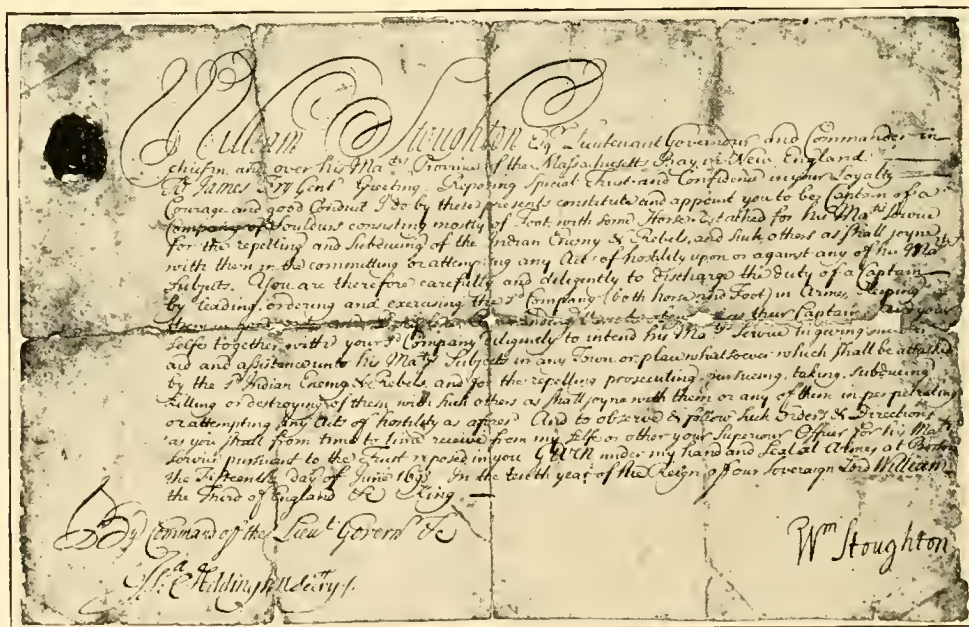 William Stoughton Esqr. Lieutenant Governour and Commander in
chief in and over his Matys. Province of the Massachusetts Bay in New England
To James Fry Gent Greeting Reposing Special Trust and Confidence in your Loyalty
Courage and good Conduct I do by these presents constitute and appoint you to be Captain of a
Company of Souldurs consisting mostly of Foot with Some Horse detached for his Matys Service
for the repelling and Subdueing of the Indian Enemy & Rebels, and Such others as Shall joyne
with them in the committing or attempting any Acts of hostility upon or against any of his Matys
Subjects. You are therefore carefully and diligently to discharge the duty of a Captain
by leading, ordering and exercising the sd Company (both horse and Foot) in Armes, Keeping
them in good as their Captain and your
Selfe together with your sd Company diligently to intend his Matys Service In giving succour
aid and assistance unto his Matys Subjects in any Town or place whatsoever which Shall be attacked
by the sd Indian Enemy & Rebels, and for the repelling prosecuting, pursueing, taking, Subdueing
Killing or destroying of them with Such others as Shall joyne with them or any of them in perpetrating
or attempting any Acts of hostility as aforesd And to observe & follow Such Orders & Directions
as you Shall from time to time receive from my Selfe or other your Superiour Officer for his Matys
Service pursuant to the Trust reposed in you Given under my hand and Seal at Armes at Boston
the Fifteenth day of June 1698 In the tenth year of the Reign of our Soveraign Lord William
the Third of England &c King
By Command of the Lieut Governr &c
Isa Addington Secry.
Wm Stoughton